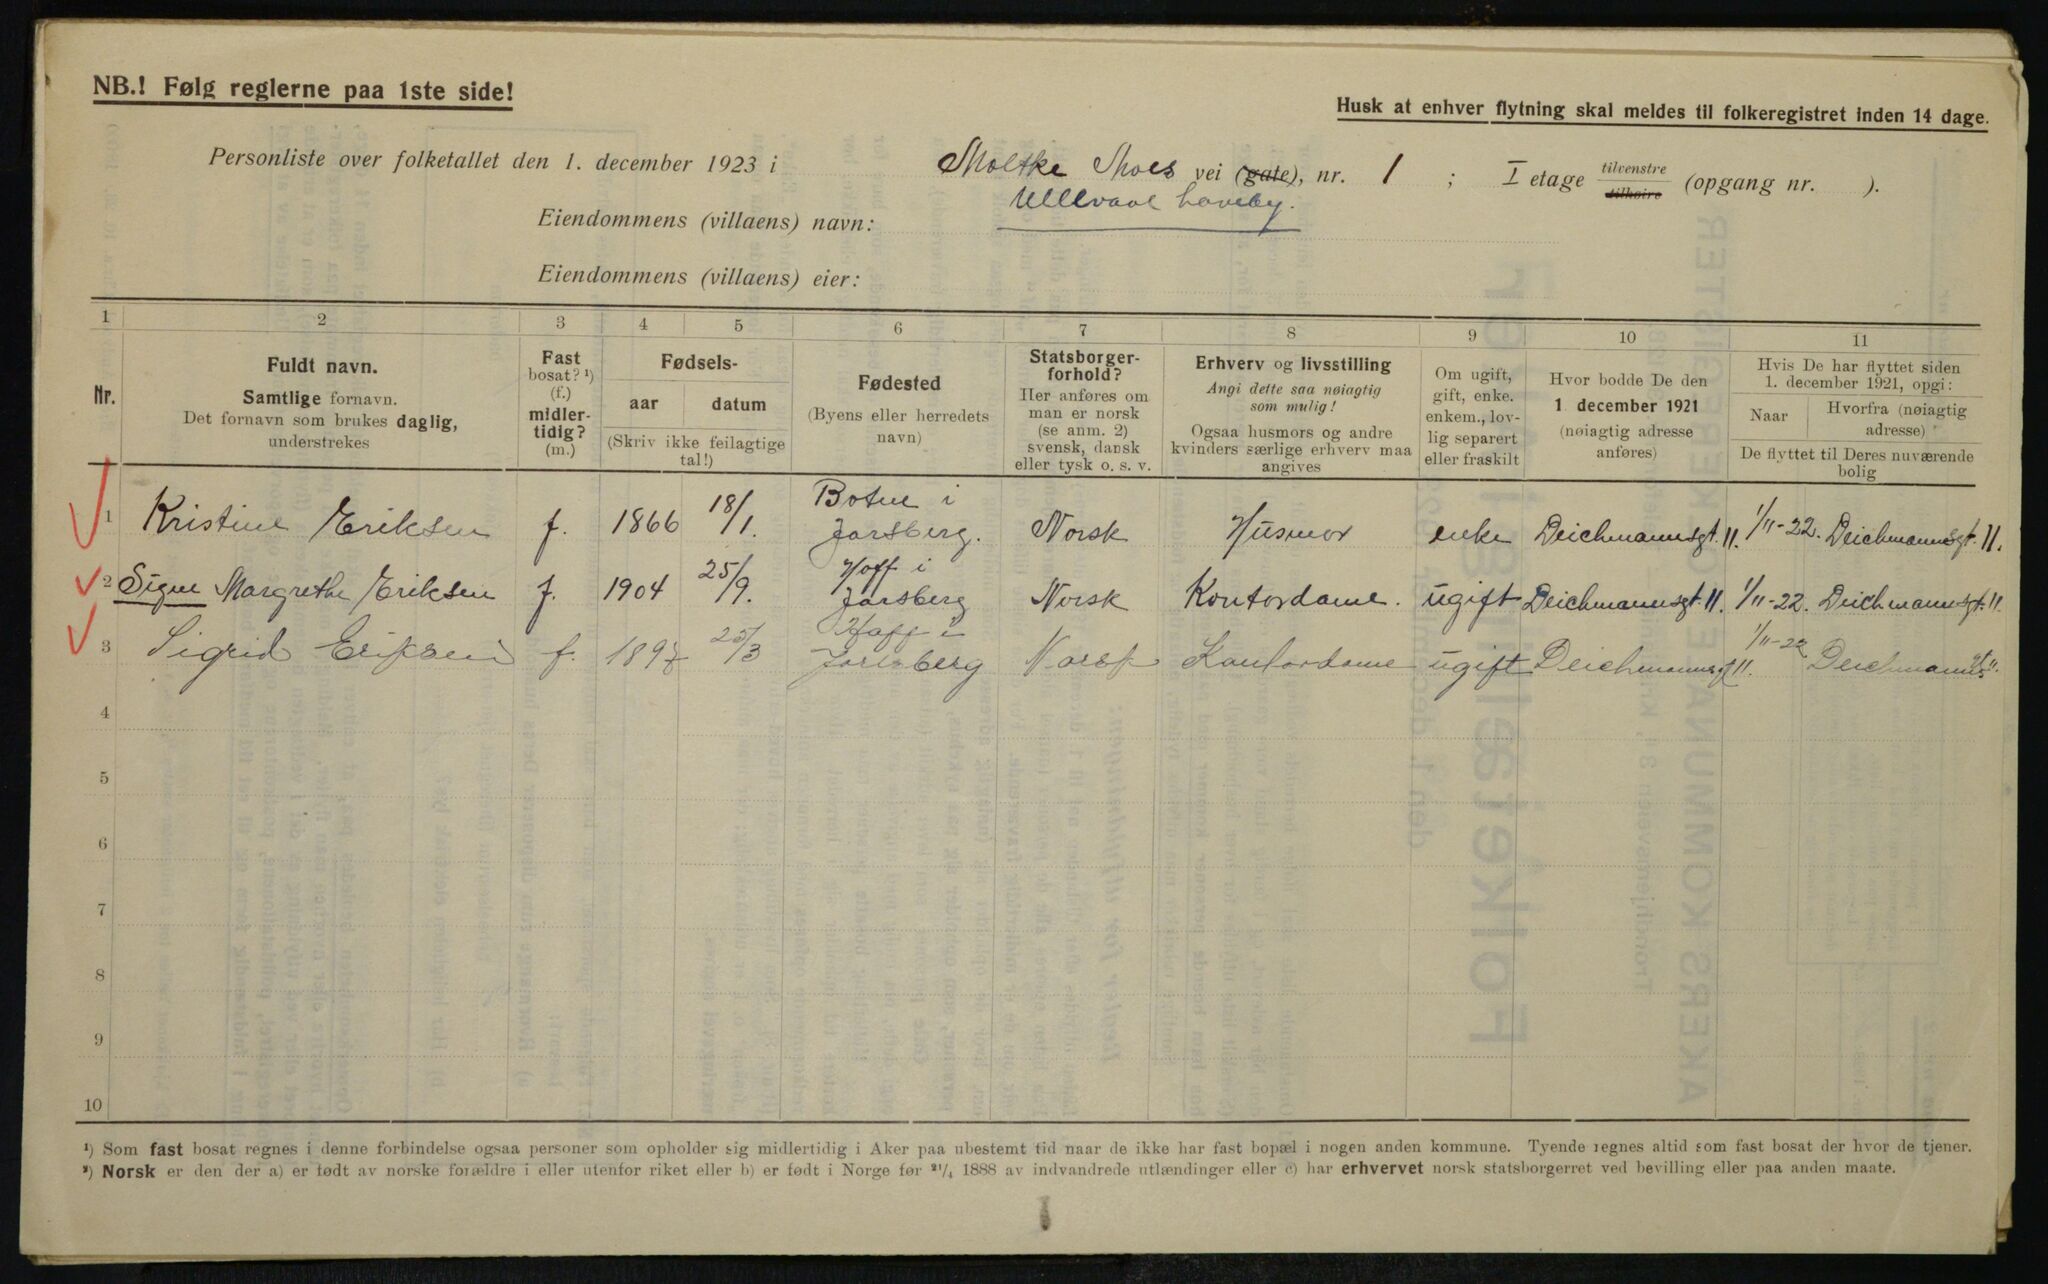 NB.! Følg reglerne paa 1ste side!
Husk at enhver flytning skal meldes til folkeregistret inden 14 dage.
Personliste over folketallet den 1. december 1923 i Moltke Moes vei (gate), nr. 1 ; I etage tilvenstre tilhøire (opgang nr. ).
Eiendommens (villaens) navn: Ullevaal haveby.
Eiendommens (villaens) eier:
1 2 3 4 5 6 7 8 9 10 11
Nr.
Fuldt navn.
Samtlige fornavn.
Det fornavn som brukes daglig,
understrekes
Fast
bosat? ¹)
(f.)
midler-
tidig?
(m.)
Fødsels-
aar datum
(Skriv ikke feilagtige
tal!)
Fødested
(Byens eller herredets
navn)
Statsborger-
forhold?
Her anføres om
man er norsk
(se anm. 2)
svensk, dansk
eller tysk o. s. v.
Erhverv og livsstilling
Angi dette saa nøiagtig
som mulig!
Ogsaa husmors og andre
kvinders særlige erhverv maa
angives
Om ugift,
gift, enke.
enkem., lov-
lig separert
eller fraskilt
Hvor bodde De den
1 december 1921
(nøiagtig adresse
anføres)
Hvis De har flyttet siden
1. december 1921, opgi:
Naar Hvorfra (nøiagtig
adresse)
De flyttet til Deres nuværende
bolig
1 Kristine Eriksen f. 1866 18/1. Botne i Jarsberg. Norsk Husmor enke Deichmannsgt. 11. 1/11-22. Deichmannsgt. 11.
2 Signe Margrethe Eriksen f. 1904 25/9. Hoff i Jarsberg Norsk Kontordame. ugift Deichmannsgt. 11. 1/11-22. Deichmannsgt. 11
3 Sigrid Eriksen f. 25/3 Hoff i Jarlsberg Norsk Kontordame ugift Deichmannsgt 11. 1/11-22 Deichmannsgt 11.
4
5
6
7
8
9
10
¹) Som fast bosat regnes i denne forbindelse ogsaa personer som opholder sig midlertidig i Aker paa ubestemt tid naar de ikke har fast bopæl i nogen anden kommune. Tyende regnes altid som fast bosat der hvor de tjener.
²) Norsk er den der a) er født av norske forældre i eller utenfor riket eller b) er født i Norge før ²¹/₄ 1888 av indvandrede utlændinger eller c) har erhvervet norsk statsborgerret ved bevilling eller paa anden maate.